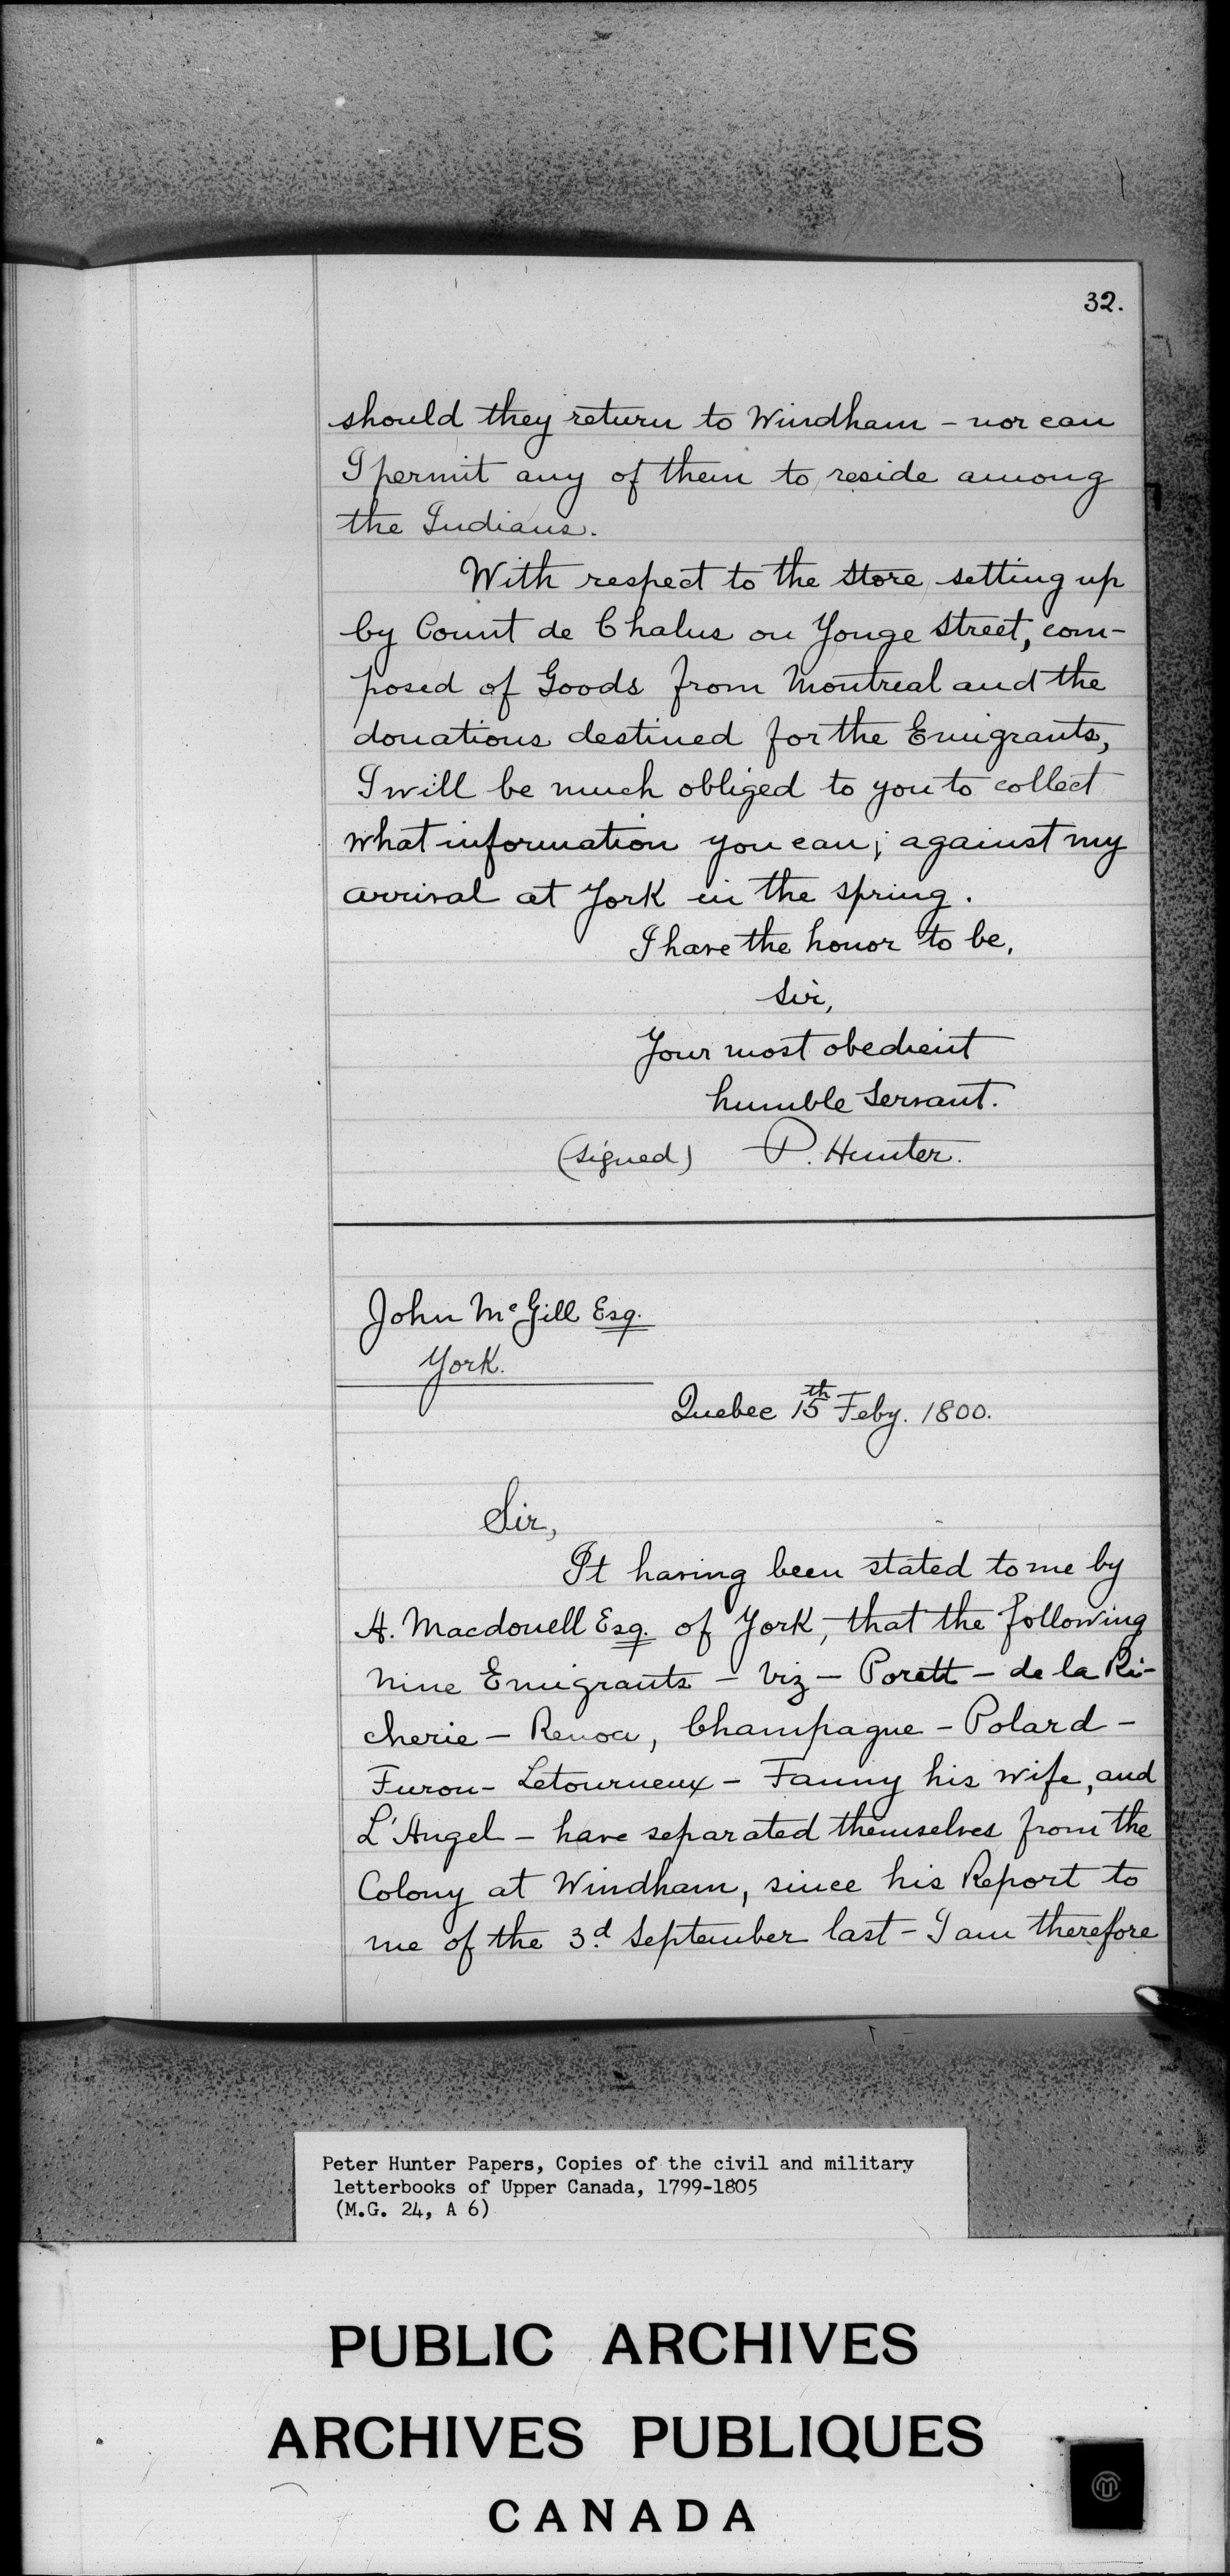 32.
should they return to Windham - nor can
I permit any of them to reside among
the Indians.
With respect to the Store setting up
by Count de Chalus on Yonge Street, com-
posed of Goods from Montreal and the
donations destined for the Emigrants,
I will be much obliged to you to collect
what information you can; against my
arrival at York in the spring.
I have the honor to be,
Sir,
Your most obedient
humble Servant.
(signed) P. Hunter.
John McGill Esq.
York.
Quebec 15th Feby. 1800.
Sir,
It having been stated to me by
A. Macdonell Esq. of York, that the following
nine Emigrants - viz - Porett - de la Ri-
cherie - Renou, Champagne - Polard -
Furon - Letourneux - Fanny his wife, and
L'Angel - have separated themselves from the
Colony at Windham, since his Report to
me of the 3d September last - I am therefore
Peter Hunter Papers, Copies of the civil and military
letterbooks of Upper Canada, 1799-1805
(M.G. 24, A 6)
PUBLIC ARCHIVES
ARCHIVES PUBLIQUES
CANADA